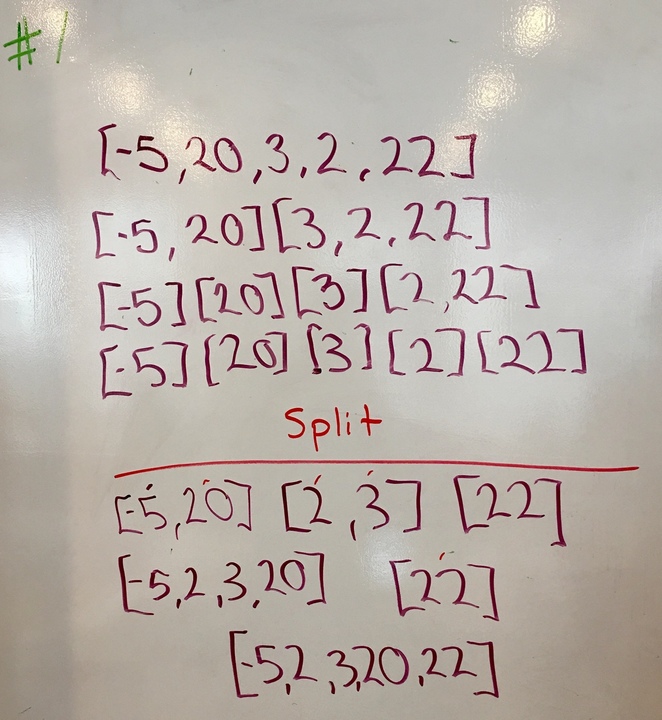 #1
[-5,20,3,2,22]
[-5,20][3,2,22]
[-5][20][3][2,22]
[-5][20][3][2][22]
Split
[-5,20] [2,3] [22]
[-5,2,3,20] [22]
[-5,2,3,20,22]